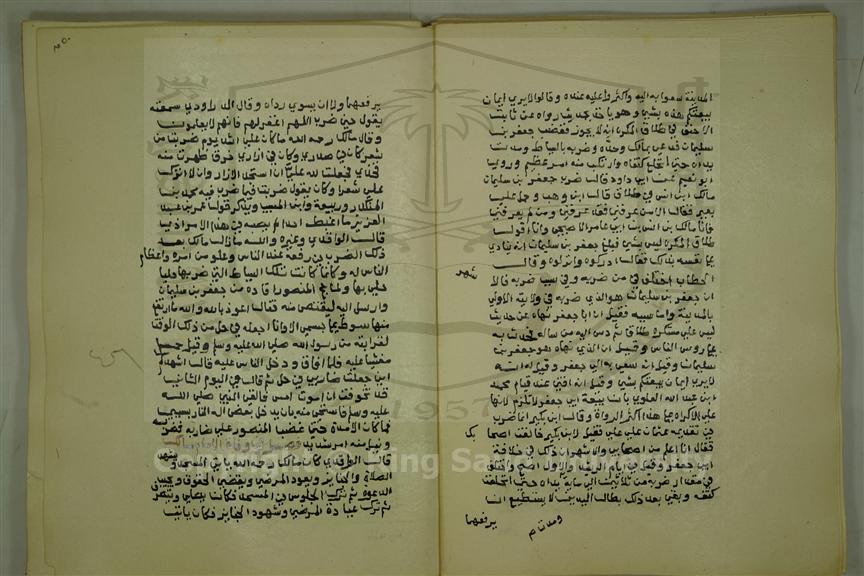 المدينة سعوا به اليه واكثروا عليه عنده وقالوا لا يري ايمان
بيعتكم هذه بشي وهو ياخذ بحديث رواه عن ثابت
الاحنف في طلاق المكره انه لا يجوز فغضب جعفر بن
سليمان فدعي بمالك وحده وضربه بالسياط ومدت
يداه حتى انخلع كتفاه وارتكب منه امر عظيم وروي
ابو نعيم عن ابي داود قال ضرب جعفر بن سليمان
مالك ابن انس في طلاق قال ابن وهب وحمل علي
بعير فقال الا من عرفني فقد عرفني ومن لم يعرفني
فانا مالك بن انس بن ابي عامر الاصبحي وانا اقول
طلاق المكره ليس بشي فبلغ جعفر بن سليمان انه ينادي
علي نفسه بذلك فقال ادركوه وانزلوه وقال
اختلف في من ضربه وفي سبب ضربه قالا شهر
ان جعفر بن سليمان هو الذي ضربه في ولايته الاولي
بالمدينة واما سببه فقيل ان ابا جعفر نهاه عن حديث
ليس علي مستكره طلاق ثم دس اليه من ساله فحدث به
علي روس الناس وقيل ان الذي نهاه هو جعفر بن
سليمان وقيل انه سعي به الي جعفر وقيل له انه
لا يري ايمان بيعتكم بشي وقيل انه افتي عند قيام محمد
ابن عبد الله العلوي بان بيعة ابي جعفر لا تلزم لانها
علي الاكراه علي هذا اكثر الرواة وقال ابن بكير انما ضرب
في تقديمه عثمان علي علي فقيل لابن بكير خالفت اصحابك
فقال انا اعلم من اصحابي والاشهر ان ذلك في خلافة
ابي جعفر وقيل في ايام الرشيد والاول اصح واختلف
في مقدار ضربه من ثلاثين الي ماية ومدت يداه حتى انحلت
كتفه وبقي بعد ذلك يطال اليدين لا يستطيع ان
يرفعهما
يرفعهما ولا ان يسوي رداه وقال الدراوردي سمعته
يقول حين ضرب اللهم اغفر لهم فانهم لا يعلمون
وقال مالك رحمه الله ما كان علي اشد يوم ضربت من
شعر كان في صدري وكان في ازاري خرق ظهرت منه
فخذي فجعلت لله علي ان استجد الازار وان لا اترك
علي شعرا وكان يقول ضربت فيما ضرب فيه محمد بن
المنكدر وربيعة وابن المسيب ويذكر قول عمر بن عبد
العزيز ما اغبط احدا لم يصبه في هذا الامر اذي
قال الواقدي وغيره والله ما زال مالك بعد
ذلك الضرب في رفعة عند الناس وعلو من امره واعظام
الناس له وكانما كانت تلك السياط التي ضربها حليا
حلي بها ولما حج المنصور اقاده من جعفر بن سليمان
وارسل اليه ليقتص منه فقال اعوذ بالله والله ما ارتفع
منها سوط عن جسمي الا وانا اجعله في حل من ذلك الوقت
لقرابته من رسول الله صلي الله عليه وسلم وقيل حمل
مغشيا عليه فلما افاق ودخل الناس عليه قال اشهدكم
اني جعلت ضاربي في حل ثم قال في اليوم الثاني
قد تخوفت ان اموت امس فالقي النبي صلي الله
عليه وسلم فاستحي منه بان يدخل بعض اله النار بسببي
فما كان الا مدة حتى غضب المنصور علي ضاربه فضربه
ونيل منه امر شديد
قال الواقدي كان مالك رحمه الله ياتي المسجد ويشهد
الصلاة والجنايز ويعود المرضي ويقضي الحقوق ويجيب
الدعوة ثم ترك الجلوس في المسجد فكان يصلي وينصرف
ثم ترك عيادة المرضي وشهود الجنايز فكان ياتي
Copyright © King Saud University
1957